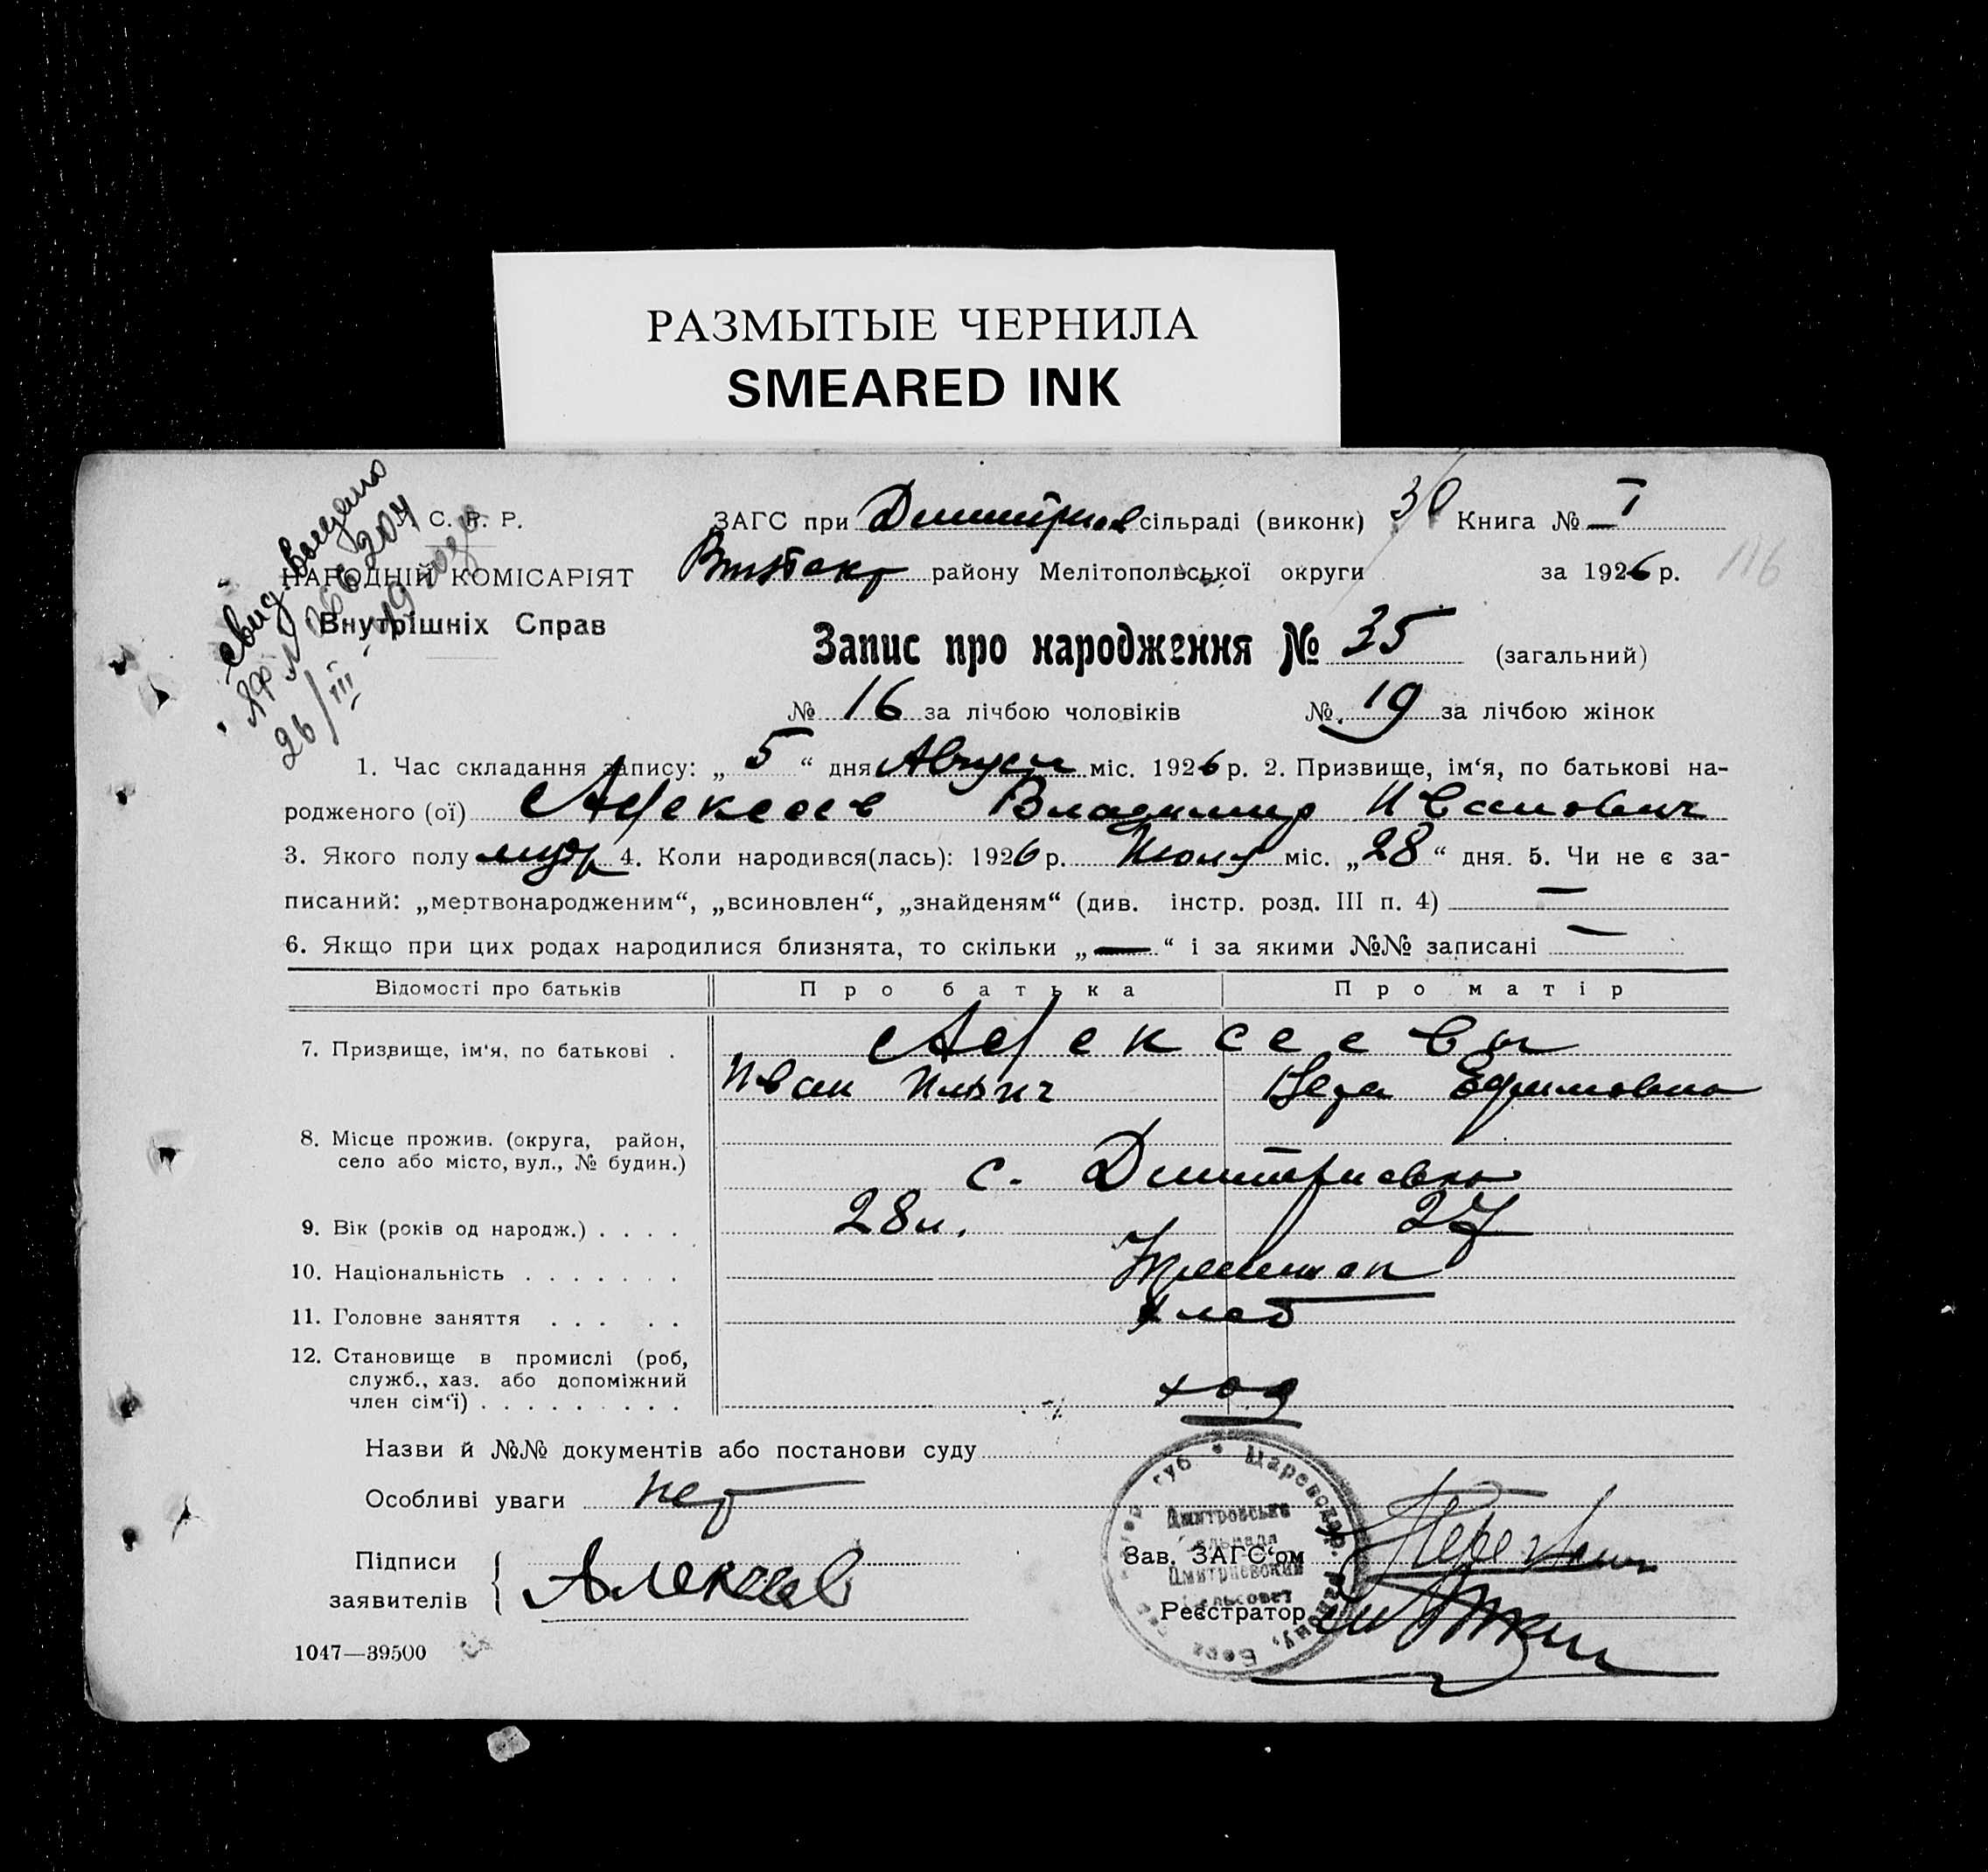 РАЗМЫТЫЕ ЧЕРНИЛА
SMEARED INK
свид выдано
26/III
С. Р. Р.
НАРОДНІЙ КОМІСАРІЯТ
Внутрішніх Справ
ЗАГС при Дмитриев сільраді (виконк) 30 Книга № I
району Мелітопольської округи за 1926 р.
116
Запис про народження № 35 (загальний)
№ 16 за лічбою чоловіків № 19 за лічбою жінок
1. Час складання запису: „ 5 “ дня Август міс. 1926 р. 2. Призвище, ім‘я, по батькові на-
родженого (ої) Алексеев Владимир Иванович
3. Якого полу муж 4. Коли народився(лась): 1926 р. Июля міс. „28“ дня. 5. Чи не є за-
писаний: „мертвонародженим“, „всиновлен“, „знайденям“ (див. інстр. розд. III п. 4) —
6. Якщо при цих родах народилися близнята, то скільки „—“ і за якими №№ записані —
Відомості про батьків Про батька Про матір
7. Призвище, ім‘я, по батькові . Алексеевы
Иван Ильич Вера Ефимовна
8. Місце прожив. (округа, район,
село або місто, вул., № будин.) с. Дмитриевка
9. Вік (років од народж.) . . . . 28 л. 27
10. Національність . . . . . . .
11. Головне заняття . . . . . хлеб
12. Становище в промислі (роб,
служб., хаз. або допоміжний
член сім‘ї) . . . . . . . . . хоз
Назви й №№ документів або постанови суду
Особливі уваги нет
Підписи
заявителів { Алексеев
Зав. ЗАГС‘ом
Реєстратор
Дмитровська
Сільрада
Дмитриевский
сельсовет
1047—39500